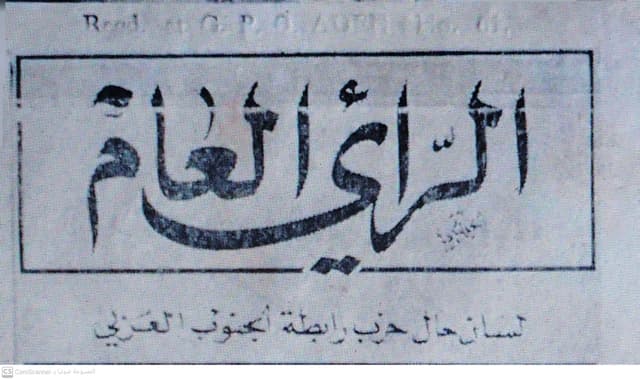 Regd. at G. P. O. ADEN. No. 61.
الرّأي العام
لسان حال حزب رابطة الجنوب العربي
CS CamScanner